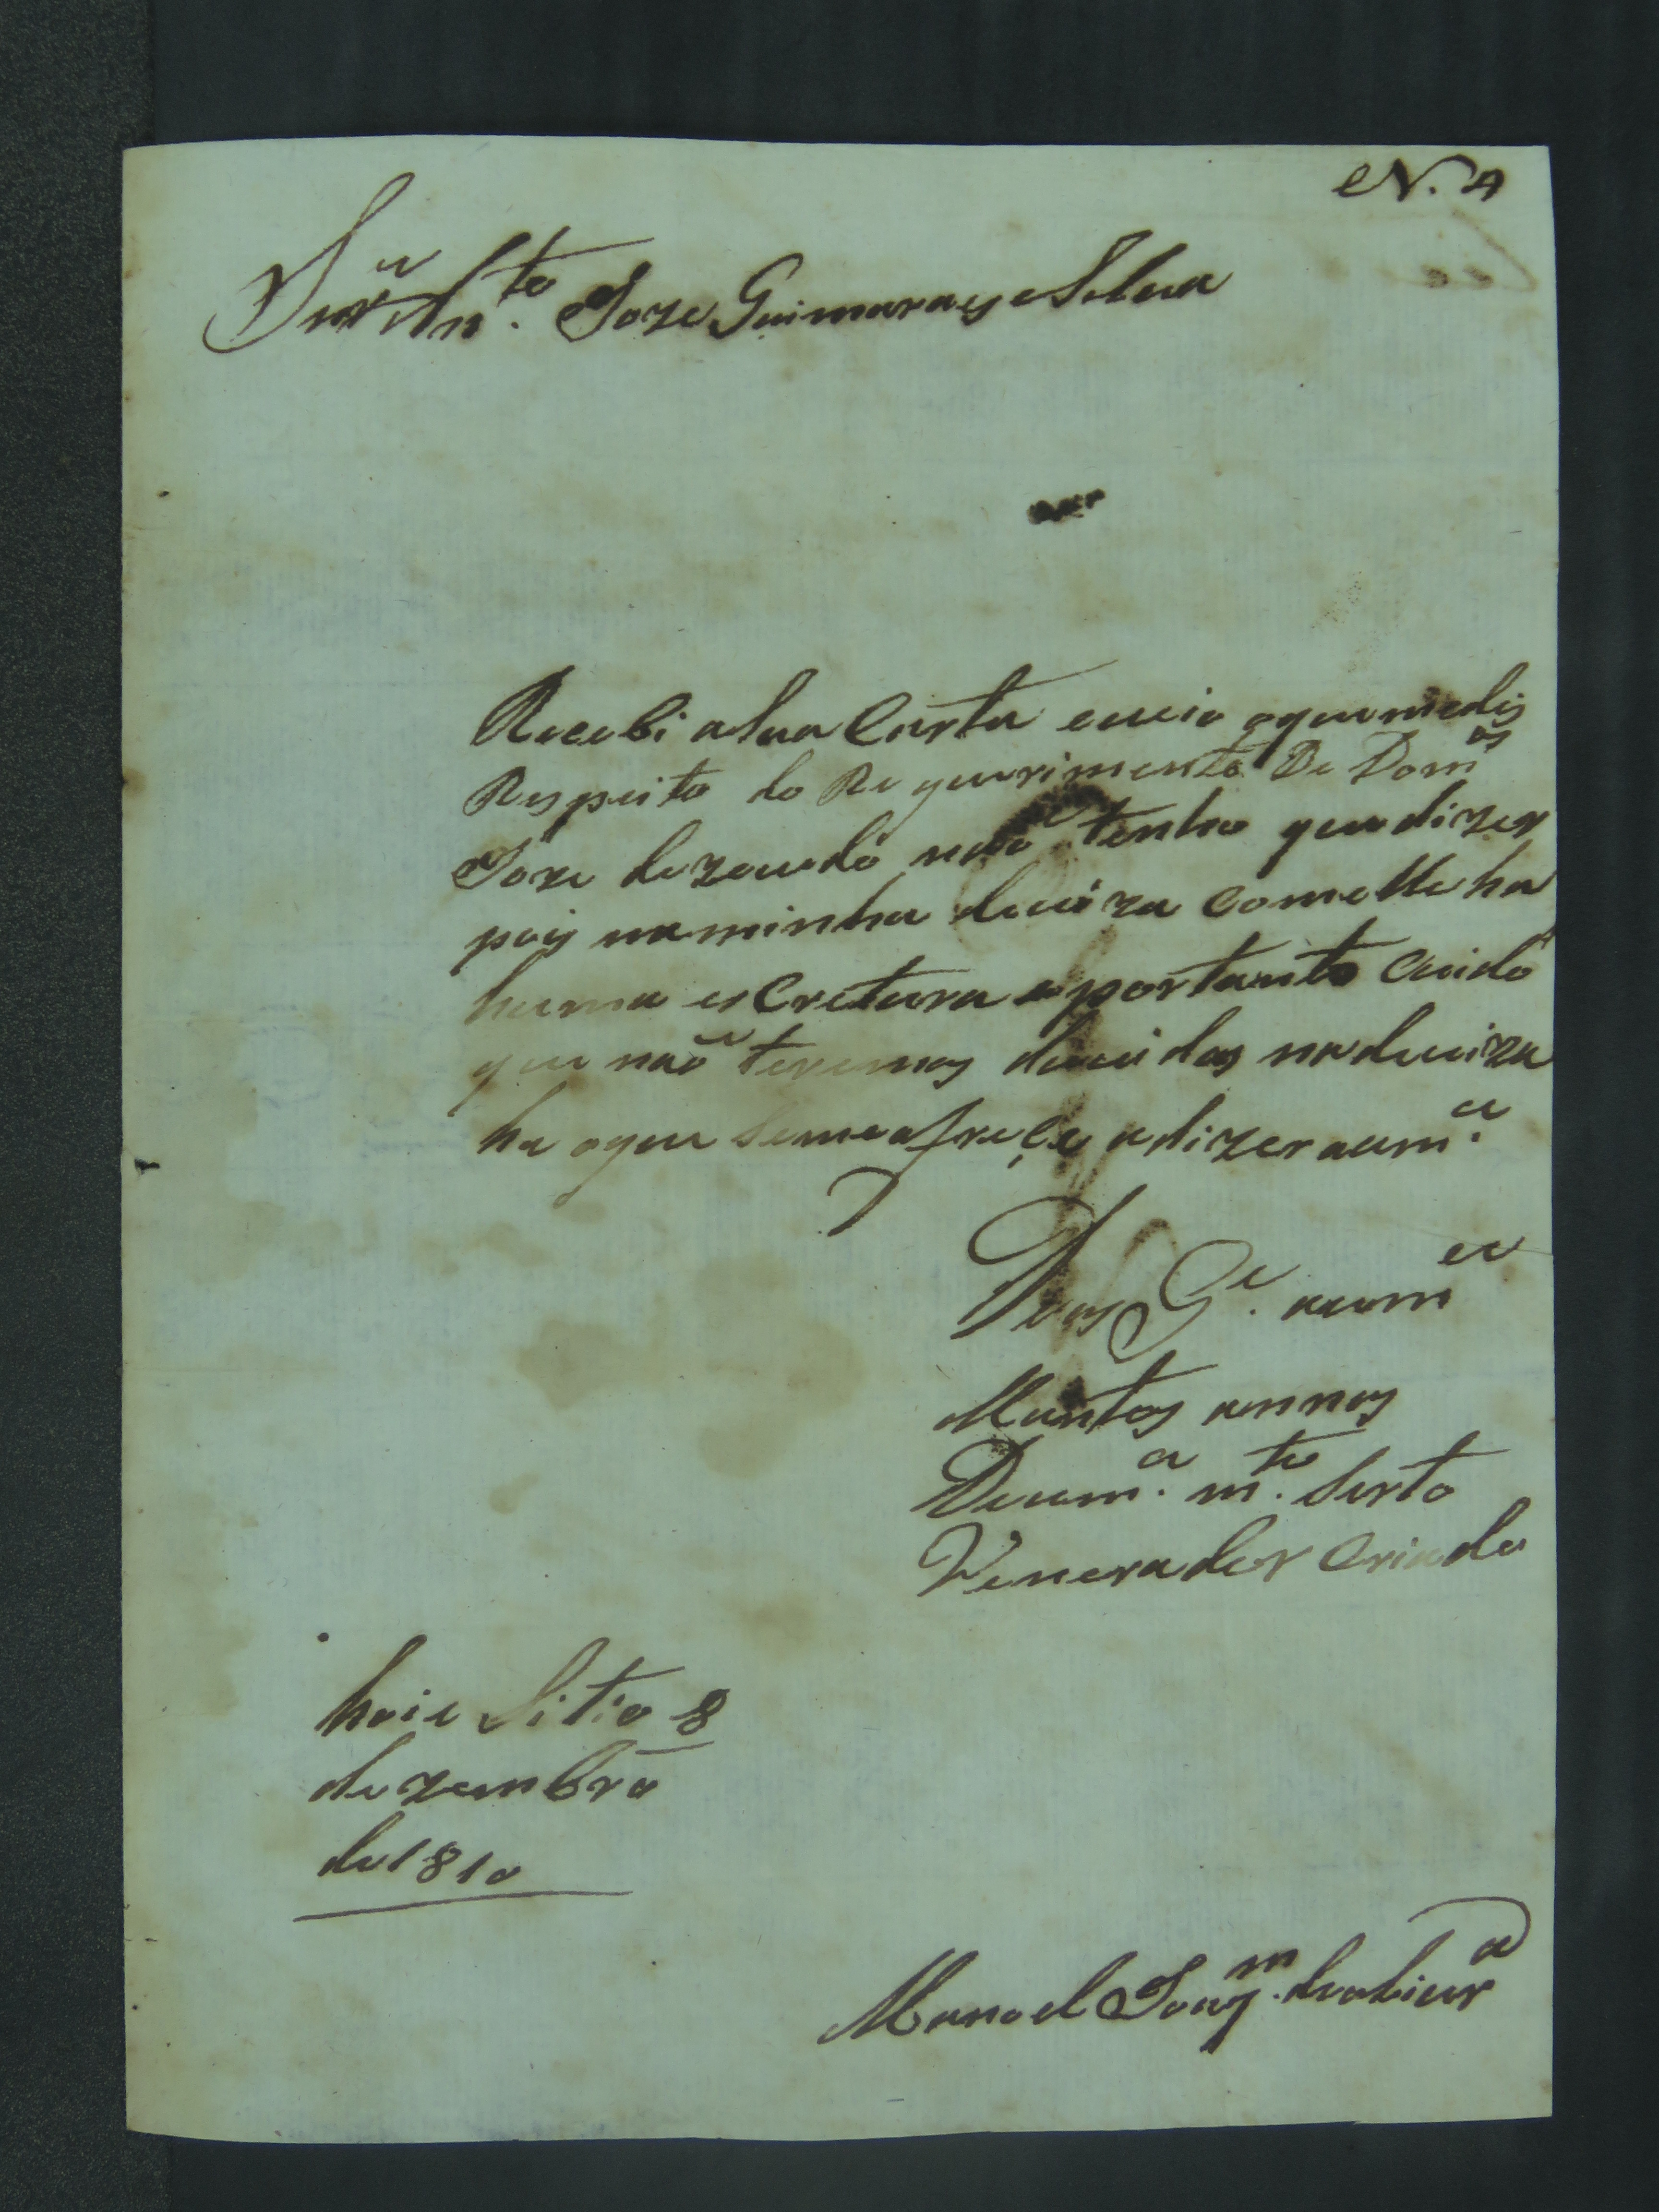 N. 4
Snr. Anto. Joze Guimarays e Silva
Recebi a Sua Carta e ueio o que me dis
Respeito do Requerimento De Domos
Joze de zeuedo não tenho que dizer
pois na minha deuiza Com elle ha
huma esCretura e portanto Cuido
que não teremos duuidas na deuiza
he o que Seme ofreçe a dizer a um.ce
Deos G.e a um ce
Muntos annos
De um.ce m.to Serto
Venerador Criado
hoie Sitio 8
dezembro
de 1810
Manoel Joaq.m de oliur.a